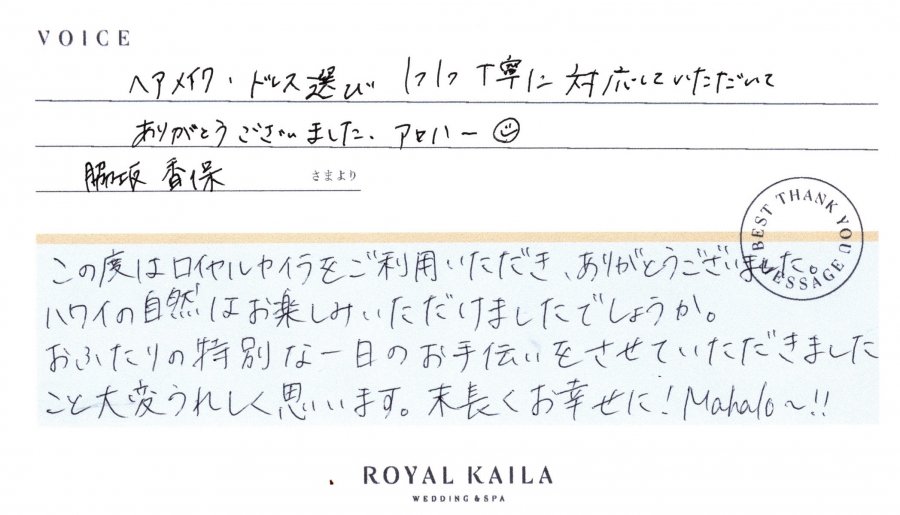 VOICE
ヘアメイク・ドレス選び 1つ1つ丁寧に対応していただいて
ありがとうございました、アロハー
脇坂 香保 さまより
BEST THANK YOU MESSAGE
この度はロイヤルカイラをご利用いただき、ありがとうございました。
ハワイの自然はお楽しみいただけましたでしょうか。
おふたりの特別な一日のお手伝いをさせていただきました
こと大変うれしく思います。末長くお幸せに！Mahalo～!!
ROYAL KAILA
WEDDING & SPA